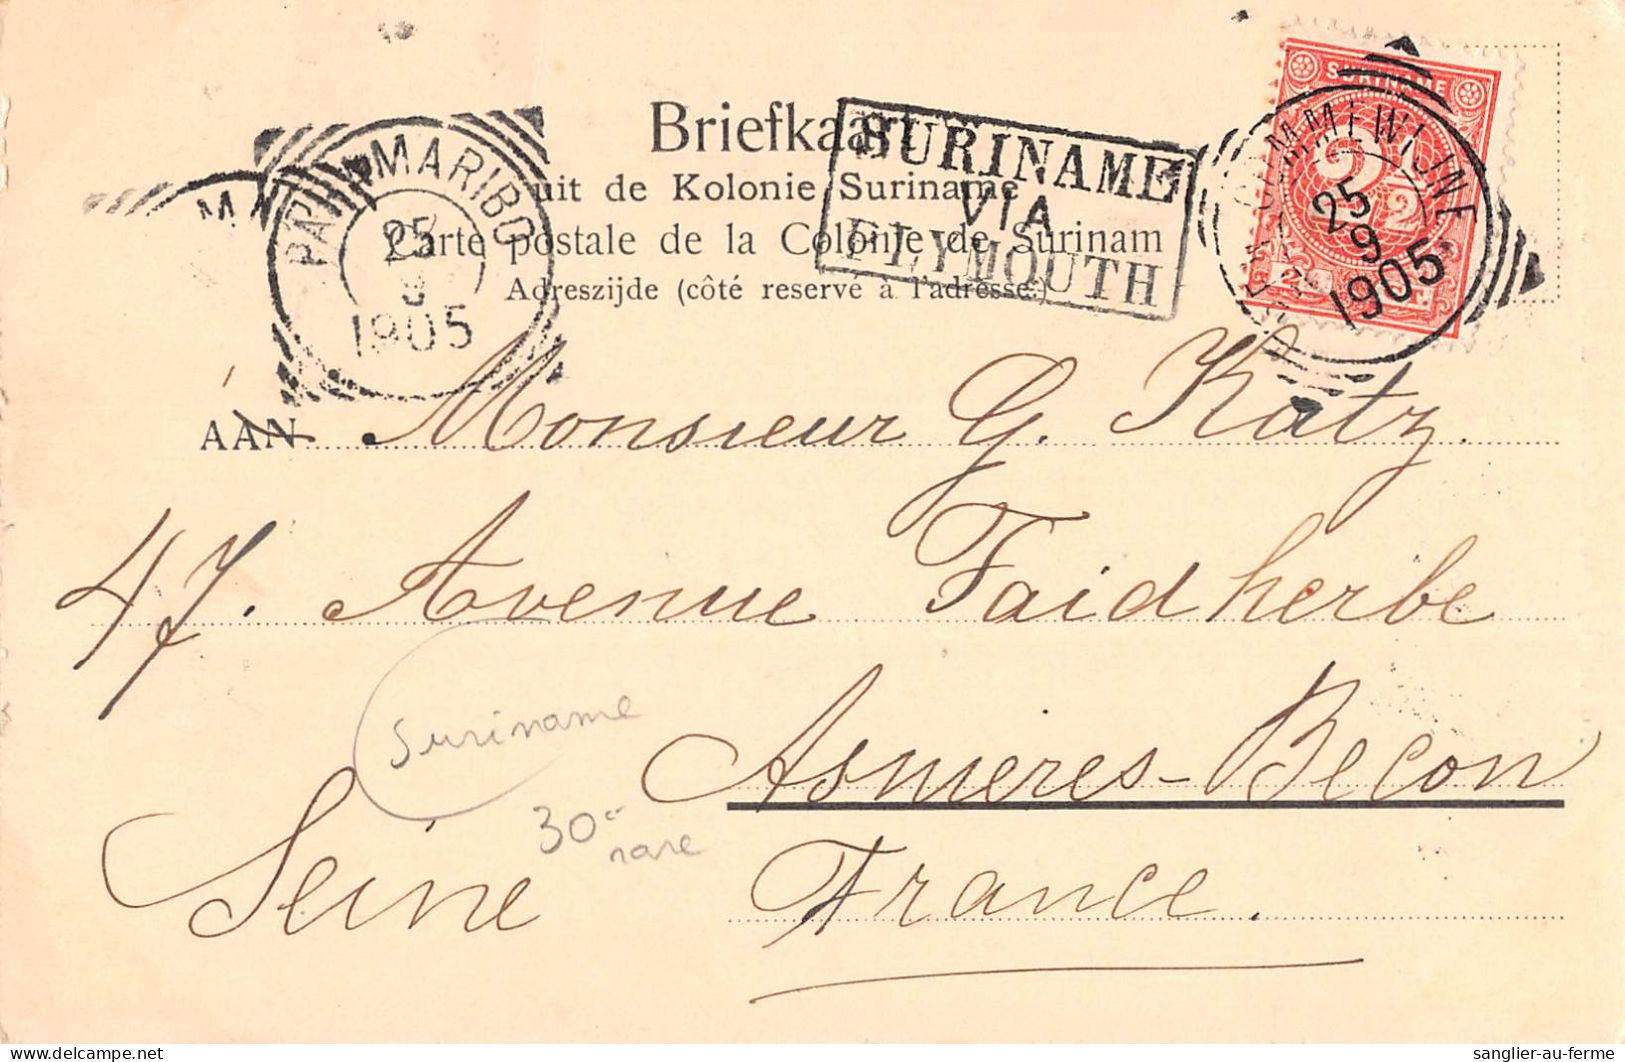 Briefkaart
uit de Kolonie Suriname
Carte postale de la Colonie de Surinam
Adreszijde (côté reservé à l'adresse.)
SURINAME
VIA
PLYMOUTH
PARAMARIBO
25
9
1905
SURINAME
2 1/2
COMMEWIJNE
25
9
1905
À AAN Monsieur G. Katz.
47. Avenue Faidherbe
Asnieres-Becon
Seine France.
Suriname
30€
rare
sanglier-au-ferme